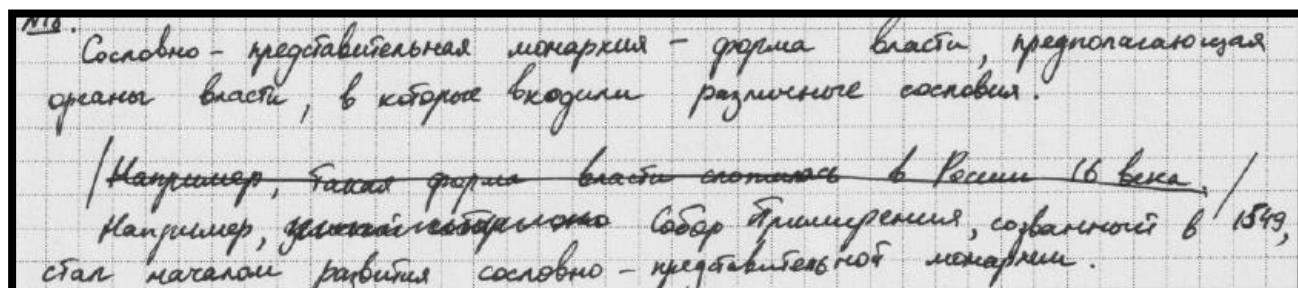 №18.
Сословно - представительная монархия - форма власти, предполагающая
органы власти, в которые входили различные сословия.
Например, такая форма власти сложилась в России 16 века.
Например, Собор Примирения, созванный в 1549,
стал началом развития сословно - представительной монархии.